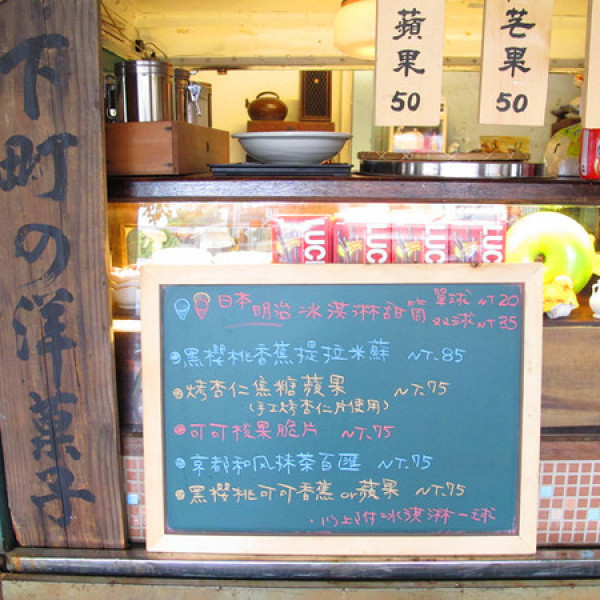 下町の洋菓子
蘋果
50
芒果
50
LUC
LUC
LUC
LUC
日本明治冰淇淋甜筒 單球 NT 20
双球 NT 35
黑櫻桃香蕉提拉米蘇 NT.85
烤杏仁焦糖蘋果 NT.75
(手工烤杏仁片使用)
可可榛果脆片 NT.75
京都和风抹茶百匯 NT.75
黑櫻桃可可香蕉or蘋果 NT.75
·以上附冰淇淋一球